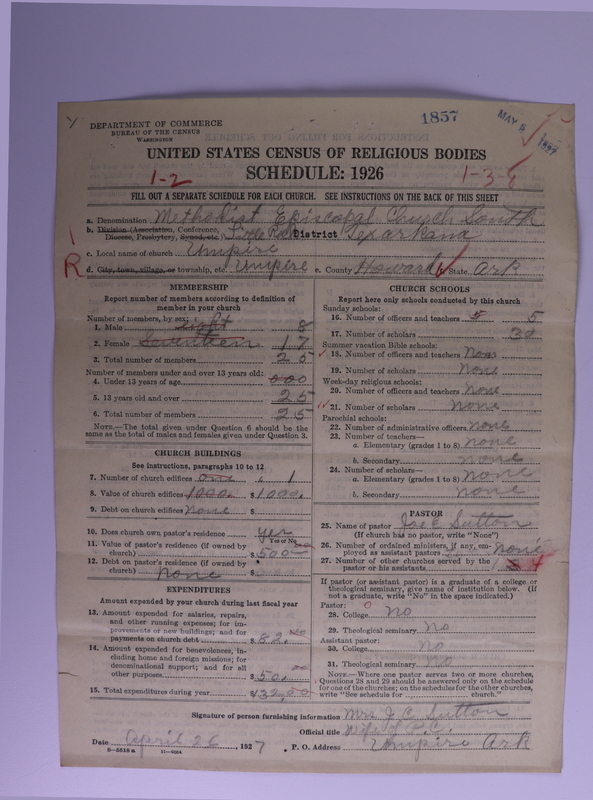 1857
MAY 8 1927
DEPARTMENT OF COMMERCE
BUREAU OF THE CENSUS
WASHINGTON
UNITED STATES CENSUS OF RELIGIOUS BODIES
SCHEDULE: 1926
1-2
1-3-8
FILL OUT A SEPARATE SCHEDULE FOR EACH CHURCH. SEE INSTRUCTIONS ON THE BACK OF THIS SHEET
a. Denomination Methodist Episcopal Church South
b. Division (Association, Conference, Diocese, Presbytery, Synod, etc.) Little Rock District Texarkana
c. Local name of church Umpire
R
d. City, town, village, or township, etc. Umpire e. County Howard State Ark
MEMBERSHIP
Report number of members according to definition of member in your church
Number of members, by sex:
1. Male Eight 8
2. Female Seventeen 17
3. Total number of members 25
Number of members under and over 13 years old:
4. Under 13 years of age 000
5. 13 years old and over 25
6. Total number of members 25
NOTE.—The total given under Question 6 should be the same as the total of males and females given under Question 3.
CHURCH BUILDINGS
See instructions, paragraphs 10 to 12
7. Number of church edifices one 1
8. Value of church edifices 1000. $ 1000.
9. Debt on church edifices None $
10. Does church own pastor's residence yes
Yes or No
11. Value of pastor's residence (if owned by church) $ 500
12. Debt on pastor's residence (if owned by church) None $
EXPENDITURES
Amount expended by your church during last fiscal year
13. Amount expended for salaries, repairs, and other running expenses; for improvements or new buildings; and for payments on church debt $ 82.00
14. Amount expended for benevolences, including home and foreign missions; for denominational support; and for all other purposes $ 50.00
15. Total expenditures during year $ 132.00
CHURCH SCHOOLS
Report here only schools conducted by this church
Sunday schools:
16. Number of officers and teachers 5 5
17. Number of scholars 30
Summer vacation Bible schools:
18. Number of officers and teachers None
19. Number of scholars None
Week-day religious schools:
20. Number of officers and teachers None
21. Number of scholars None
Parochial schools:
22. Number of administrative officers None
23. Number of teachers—
a. Elementary (grades 1 to 8) none
b. Secondary none
24. Number of scholars—
a. Elementary (grades 1 to 8) none
b. Secondary none
PASTOR
25. Name of pastor Sutton
(If church has no pastor, write "None")
26. Number of ordained ministers, if any, employed as assistant pastors none
27. Number of other churches served by the pastor or his assistants
If pastor (or assistant pastor) is a graduate of a college or theological seminary, give name of institution below. (If not a graduate, write "No" in the space indicated.)
Pastor:
28. College No
29. Theological seminary No
Assistant pastor:
30. College No
31. Theological seminary No
NOTE.—Where one pastor serves two or more churches, Questions 28 and 29 should be answered only on the schedule for one of the churches; on the schedules for the other churches, write "See schedule for church."
Signature of person furnishing information Mrs. J. C. Sutton
Official title
Date April 26, 1927 P. O. Address Umpire Ark
8-5518 a 11-9084